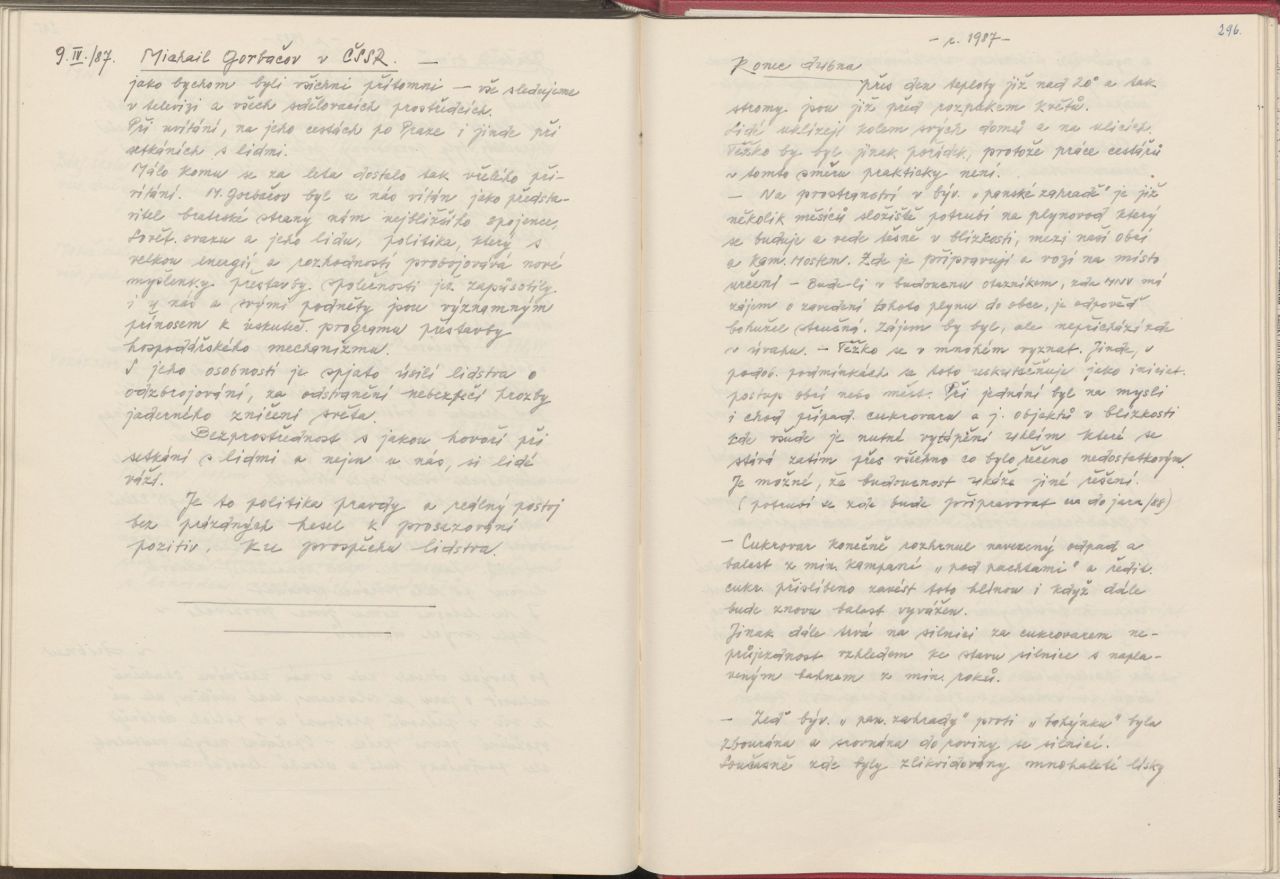 9.IV./87. Michail Gorbačov v ČSSR. —
jako bychom byli všichni přítomni — vše sledujeme
v televizi a všech sdělovacích prostředcích.
Při uvítání, na jeho cestách po Praze i jinde při
setkáních s lidmi.
Málo komu se za léta dostalo tak vřelého při-
vítání. M. Gorbačov byl u nás vítán jako předsta-
vitel bratrské strany nám nejbližšího spojence,
Sovět. svazu a jeho lidu, politika, který s
velkou energií a rozhodností probojovává nové
myšlenky přestavby společnosti jež zapůsobily
i u nás a svými podněty jsou významným
přínosem k uskuteč. programu přestavby
hospodářského mechanizmu.
S jeho osobností je spjato úsilí lidstva o
odzbrojování, za odstranění nebezpečí hrozby
jaderného zničení světa.
Bezprostřednost s jakou hovoří při
setkání s lidmi a nejen u nás, si lidé
váží.
Je to politika pravdy a reálný postoj
bez prázdných hesel k prosazování
pozitiv. ke prospěchu lidstva.
— r. 1987 —
296.
Konec dubna
přes den teploty již nad 20° a tak
stromy jsou již před rozpukem květů.
Lidé uklízejí kolem svých domů a na ulicích.
Těžko by byl jinak pořádek, protože práce cestářů
v tomto směru prakticky není.
— Na prostranství v býv. „panské zahradě" je již
několik měsíců složiště potrubí na plynovod který
se buduje a vede těsně v blízkosti, mezi naší obcí
a Kam. Mostem. Zde je připravují a vozí na místo
určení — Bude-li v budoucnu otazníkem, zda MNV má
zájem o zavedení tohoto plynu do obce, je odpověď
bohužel stručná. Zájem by byl, ale nepřichází zde
v úvahu. — Těžko se v mnohém vyznat. Jinde, v
podob. podmínkách se toto uskutečňuje jako iniciat.
postup obcí nebo měst. Při jednání byl na mysli
i chod případ. cukrovaru a j. objektů v blízkosti
kde všude je nutné vytápění uhlím které se
stává zatím přes všechno co bylo řečeno nedostatkovým.
Je možné, že budoucnost ukáže jiné řešení.
(potrubí se zde bude připravovat do jara/88)
— Cukrovar konečně rozhrnul navezený odpad a
balast z min. kampaně „pod pachtami" a ředit.
cukr. přislíbeno zavést toto hlínou i když dále
bude znovu balast vyvážen.
Jinak dále trvá na silnici za cukrovarem ne-
průjezdnost vzhledem ke stavu silnice s napla-
veným bahnem z min. roků.
— Zeď býv. „pan. zahrady" proti „bohýnku" byla
zbourána a srovnána do roviny se silnicí.
Současně zde byly zlikvidovány mnohaleté lísky